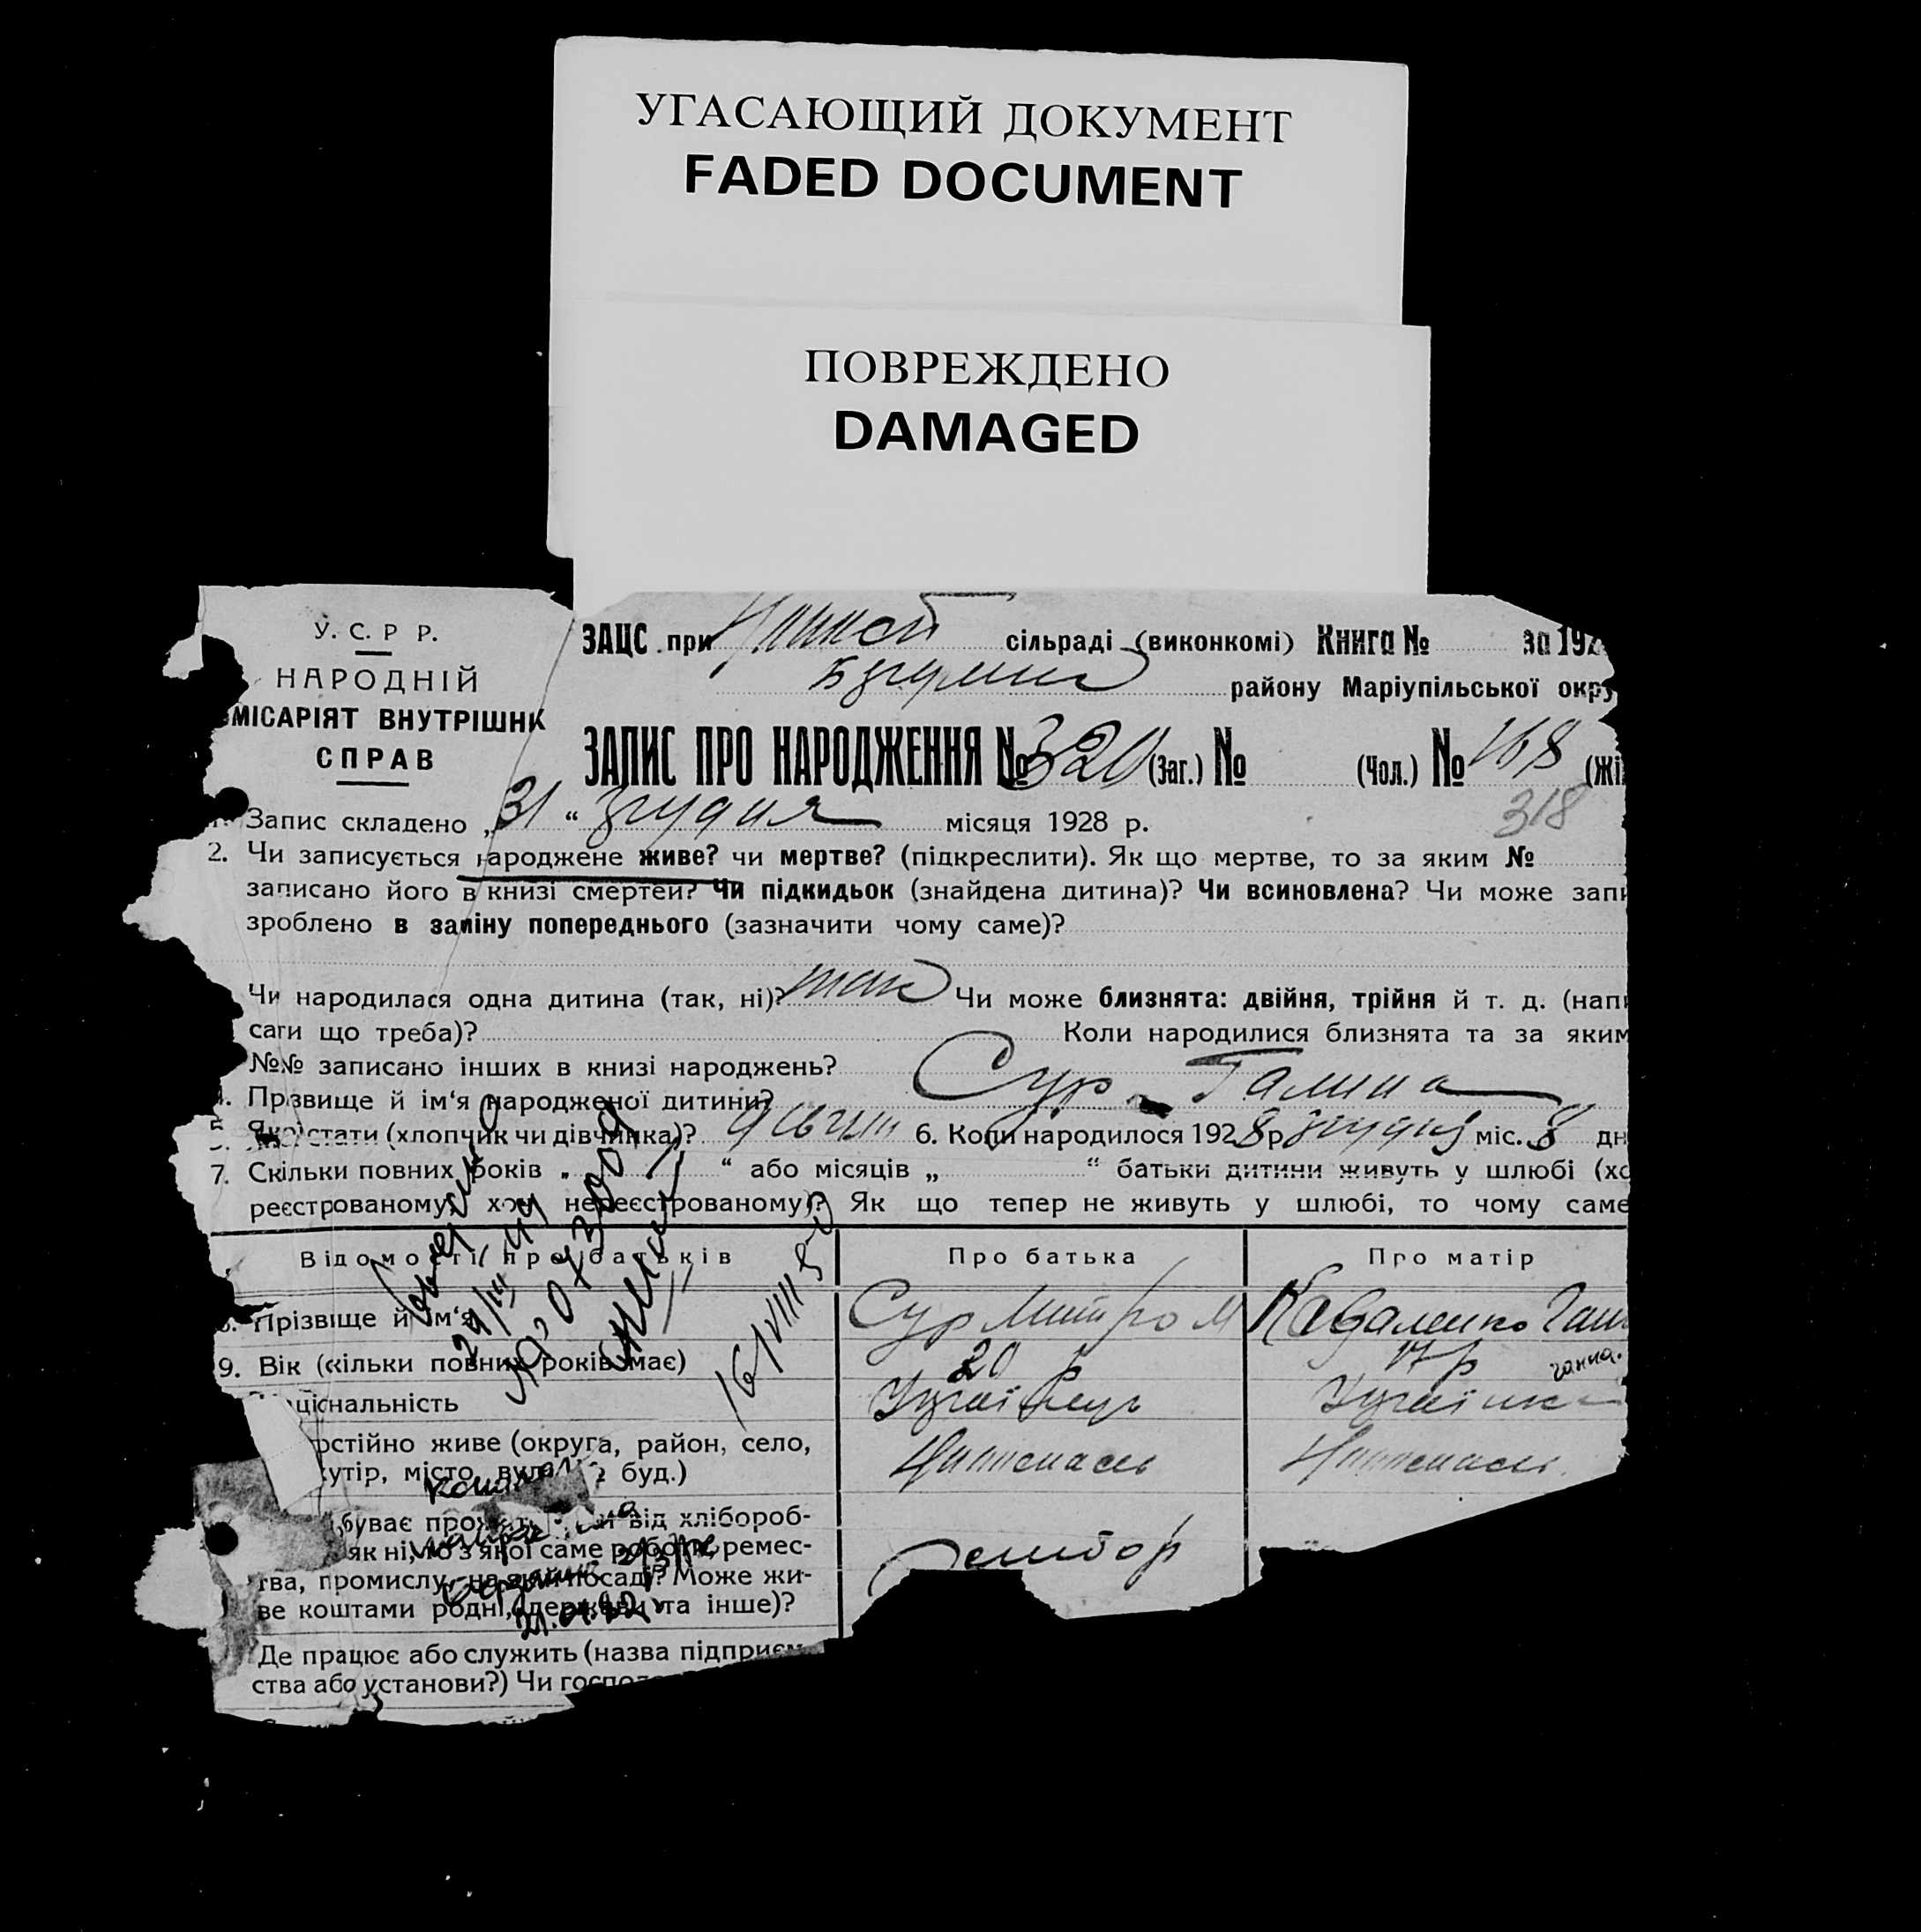 УГАСАЮЩИЙ ДОКУМЕНТ
FADED DOCUMENT
ПОВРЕЖДЕНО
DAMAGED
У. С. Р Р.
НАРОДНІЙ
МІСАРІЯТ ВНУТРІШНІ
СПРАВ
ЗАЦС при сільраді (виконкомі) Книга № за 192
району Маріупільської окру
ЗАПИС ПРО НАРОДЖЕННЯ № 320 (Заг.) № (Чол.) № 168 (Жі
318
Запис складено „31“ грудня місяця 1928 р.
2. Чи записується народжене живе? чи мертве? (підкреслити). Як що мертве, то за яким №
записано його в книзі смертей? Чи підкидьок (знайдена дитина)? Чи всиновлена? Чи може запи
зроблено в заміну попереднього (зазначити чому саме)?
Чи народилася одна дитина (так, ні)? так Чи може близнята: двійня, трійня й т. д. (напи
сати що треба)? Коли народилися близнята та за яким
№№ записано інших в книзі народжень?
4. Прізвище й ім‘я народженої дитини? Сур Галина
5. Якої стати (хлопчик чи дівчинка)? 6. Коли народилося 1928 р грудня міс. 8 дн
7. Скільки повних років „ “ або місяців „ “ батьки дитини живуть у шлюбі (хо
реєстрованому, хоч нереєстрованому)? Як що тепер не живуть у шлюбі, то чому саме
Відомості про батьків Про батька Про матір
8. Прізвіще й ім‘я Сур Митро М Коваленко Ган
ганна.
9. Вік (скільки повних років має) 20 р 17 р
ціональність Українець Українка
остійно живе (округа, район, село,
утір, місто, вул буд.)
16/VIII 5
буває прожит від хлібороб-
як ні, то з якої саме роботи, ремес-
тва, промислу, на якій посаді? Може жи-
ве коштами родні, держави та інше)?
Де працює або служить (назва підприєм-
ства або установи?) Чи господ